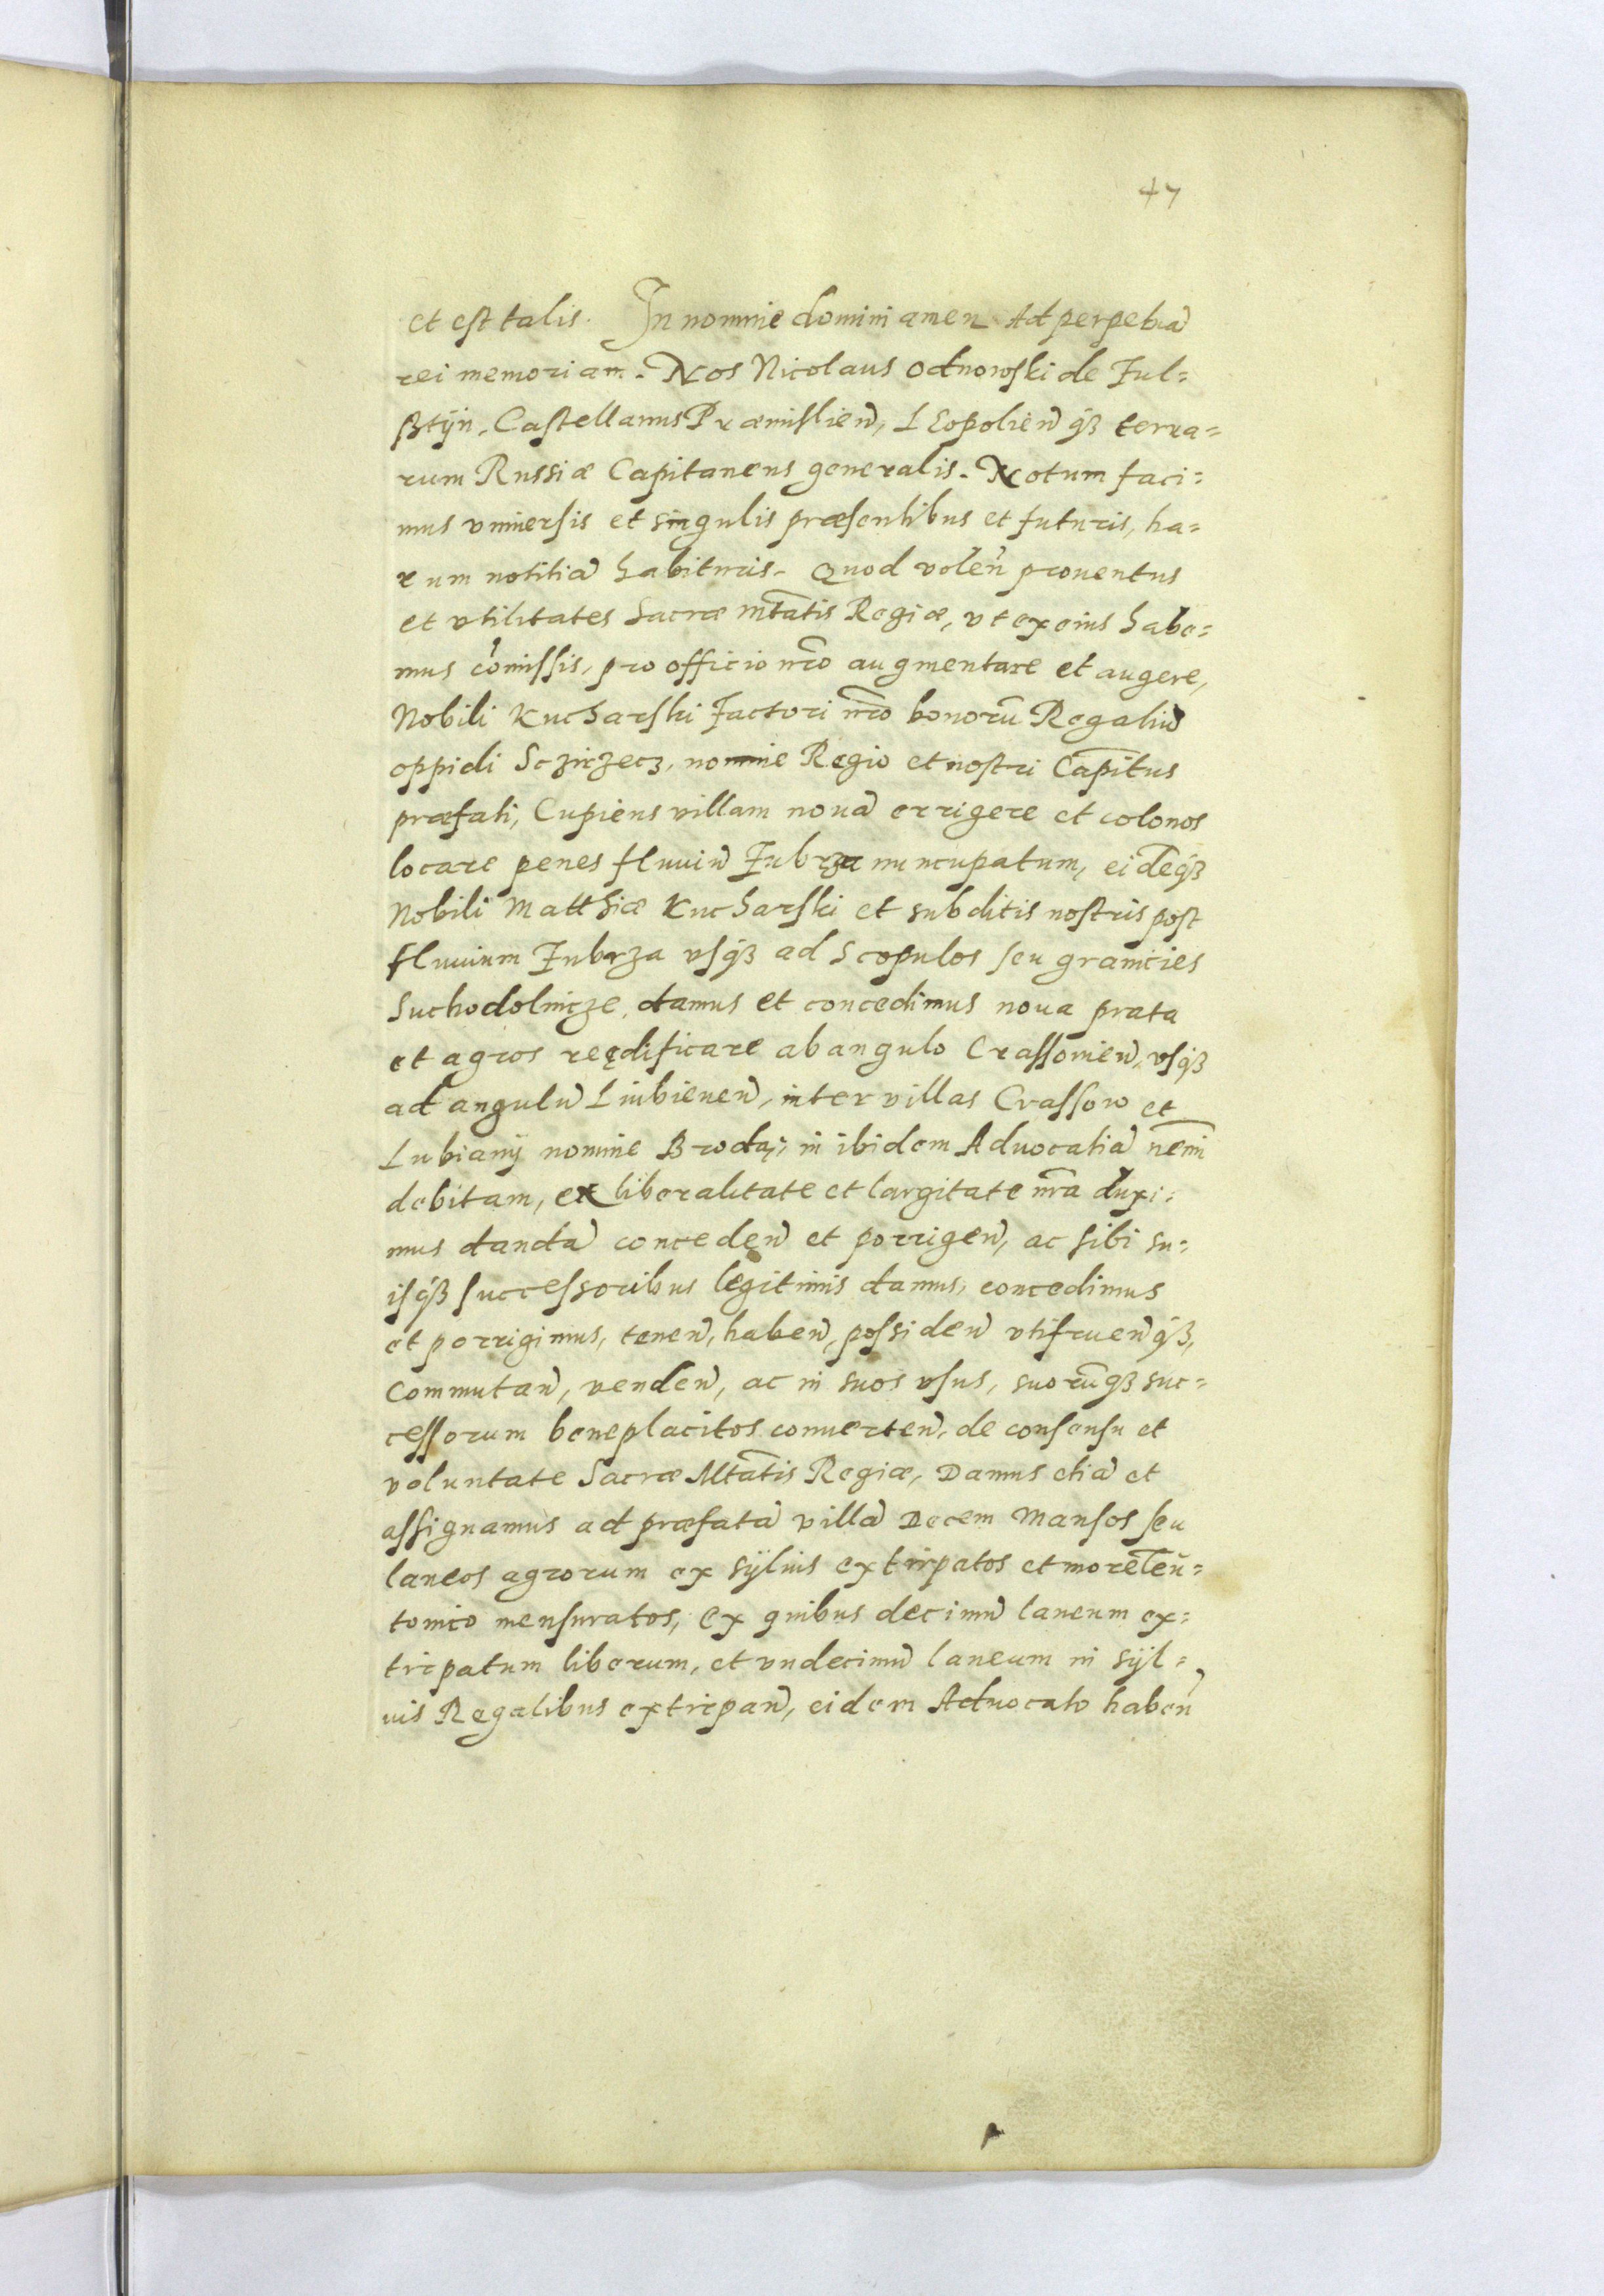 47
et est talis. In nomine domini amen Ad perpetuã
rei memoriam. Nos Nicolaus Odnowski de Ful=
sztÿn, Castellanus Præmislien̄, LEopolien̄ qꝫ terra=
rum Russiæ Capitaneus generalis. Notum faci=
mus vniuersis et singulis præsentibus et futuris, ha=
rum notitiã habituris. Quod volen̄ prouentus
et vtilitates Sacræ Mt̄atis Regiæ, vt ex eius habe=
mus com̄issis, pro officio nr̄o augmentare et augere,
Nobili Kucharski Factori nr̄o bonorū Regaliū
oppidi Sczirzecz, nomine Regio et nostri Capit̄us
præfati, Cupiens villam nouã errigere et colonos
locare penes fluuiū Zubrza nuncupatum, eidēqꝫ
Nobili Matthiæ Kucharski et subditis nostris post
fluuium Zubrza vsqꝫ ad Scopulos seu granicies
Suchodolnicze, damus et concedimus noua prata
et agros reędificare ab angulo Crassouien̄, vsqꝫ
ad angulū Liubienen̄, inter villas Crassow et
Lubianÿ nomine Brodą; in ibidem Aduocatiã nem̄i
debitam, ex liberalitate et largitate nr̄a duxi=
mus dandã conceden̄ et porrigen̄, ac sibi su=
isqꝫ successoribus legitimis damus, concedimus
et porrigimus, tenen̄, haben̄, possiden̄ vtifruen̄qꝫ,
Commutan̄, venden̄, ac in suos vsus, suorūqꝫ suc=
cessorum beneplacitos conuerten̄, de consensu et
voluntate Sacræ Mt̄atis Regiæ, Damus etiã et
assignamus ad præfatã villã Decem Mansos seu
laneos agrorum ex sÿluis extirpatos et more Teū=
tonico mensuratos, Ex quibus decimū laneum ex=
tirpatum liberum, et vndecimū laneum in sÿl=
uis Regalibus extirpan̄, eidem Aduocato haben̄